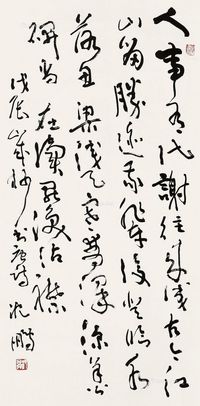 人事有代謝往來成古今江
山留勝迹我輩復登臨水
落魚梁淺天寒夢澤深羊公
碑尚在讀罷淚沾襟
戊辰歲杪書唐詩沈鵬